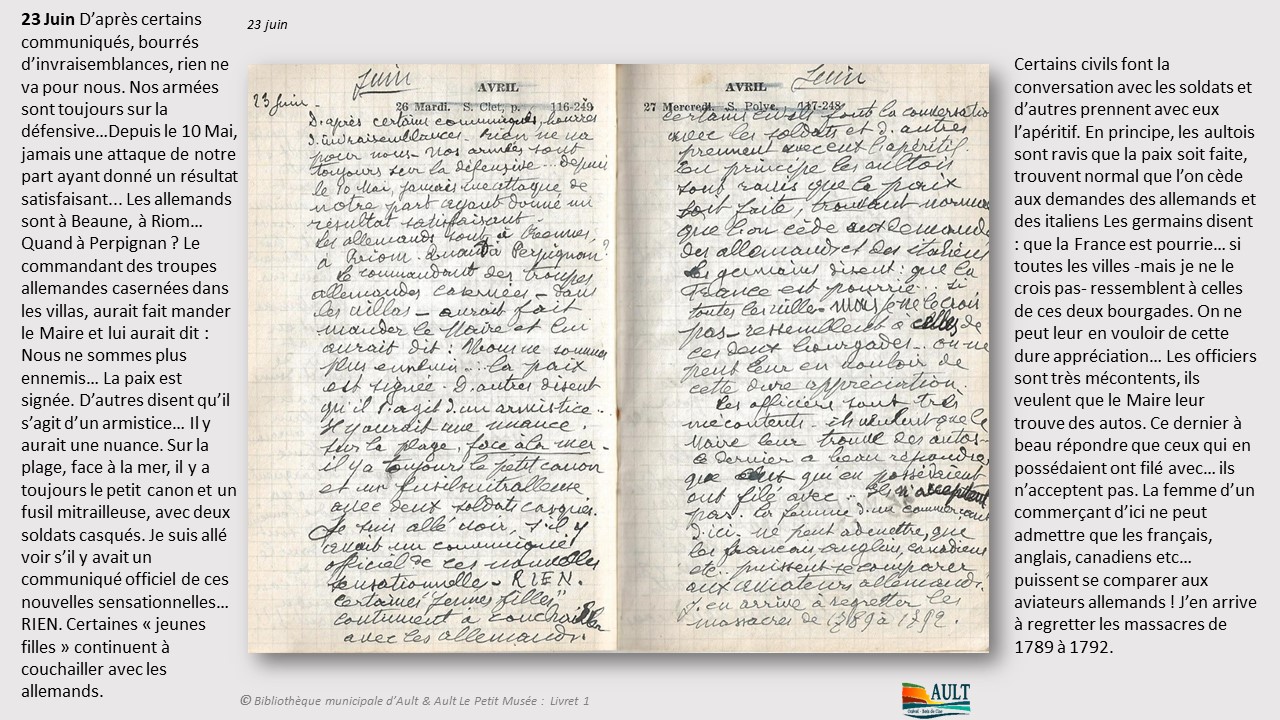 23 Juin D’après certains
communiqués, bourrés
d’invraisemblances, rien ne
va pour nous. Nos armées
sont toujours sur la
défensive…Depuis le 10 Mai,
jamais une attaque de notre
part ayant donné un résultat
satisfaisant... Les allemands
sont à Beaune, à Riom…
Quand à Perpignan ? Le
commandant des troupes
allemandes casernées dans
les villas, aurait fait mander
le Maire et lui aurait dit :
Nous ne sommes plus
ennemis… La paix est
signée. D’autres disent qu’il
s’agit d’un armistice… Il y
aurait une nuance. Sur la
plage, face à la mer, il y a
toujours le petit canon et un
fusil mitrailleuse, avec deux
soldats casqués. Je suis allé
voir s’il y avait un
communiqué officiel de ces
nouvelles sensationnelles…
RIEN. Certaines « jeunes
filles » continuent à
couchailler avec les
allemands.
23 juin
Juin
AVRIL
23 Juin -
26 Mardi. S. Clet, p. 116-249
D'après certains communiqués, bourrés
d'invraisemblances - rien ne va
pour nous - Nos armées sont
toujours sur la défensive... depuis
le 10 Mai, jamais une attaque de
notre part ayant donné un
résultat satisfaisant.
Les allemands sont à Beaune,
à Riom. Quand à Perpignan?
Le commandant des troupes
allemandes casernées - dans
les villas - aurait fait
mander le Maire et lui
aurait dit : Nous ne sommes
plus ennemis... la paix
est signée. D'autres disent
qu'il s'agit d'un armistice...
Il y aurait une nuance.
Sur la plage, face à la mer -
il y a toujours le petit canon
et un fusil mitrailleuse
avec deux soldats casqués.
Je suis allé voir, s'il y
avait un communiqué
officiel de ces nouvelles
sensationnelles - RIEN.
Certaines "jeunes filles"
continuent à couchailler
avec les allemands.
AVRIL
Juin
27 Mercredi. S. Polyc. 117-248
Certains civils font la conversation
avec les soldats et d'autres
prennent avec eux l'apéritif.
En principe les aultois
sont ravis que la paix
soit faite, trouvent normal
que l'on cède aux demandes
des allemands et des italiens
Les germains disent : que la
France est pourrie... si
toutes les villes - mais je ne le crois
pas - ressemblent à celles de
ces deux bourgades... on ne
peut leur en vouloir de
cette dure appréciation.
Les officiers sont très
mécontents - ils veulent que le
Maire leur trouve des autos -
Ce dernier a beau répondre
que ceux qui en possédaient
ont filé avec... Ils n'acceptent
pas. La femme d'un commerçant
d'ici ne peut admettre, que
les francais, anglais, canadiens
etc.. puissent se comparer
aux aviateurs allemands !
J'en arrive à regretter les
massacres de 1789 à 1792.
Certains civils font la
conversation avec les soldats et
d’autres prennent avec eux
l’apéritif. En principe, les aultois
sont ravis que la paix soit faite,
trouvent normal que l’on cède
aux demandes des allemands et
des italiens Les germains disent
: que la France est pourrie… si
toutes les villes -mais je ne le
crois pas- ressemblent à celles
de ces deux bourgades. On ne
peut leur en vouloir de cette
dure appréciation… Les officiers
sont très mécontents, ils
veulent que le Maire leur
trouve des autos. Ce dernier à
beau répondre que ceux qui en
possédaient ont filé avec… ils
n’acceptent pas. La femme d’un
commerçant d’ici ne peut
admettre que les français,
anglais, canadiens etc…
puissent se comparer aux
aviateurs allemands ! J’en arrive
à regretter les massacres de
1789 à 1792.
© Bibliothèque municipale d’Ault & Ault Le Petit Musée : Livret 1
AULT